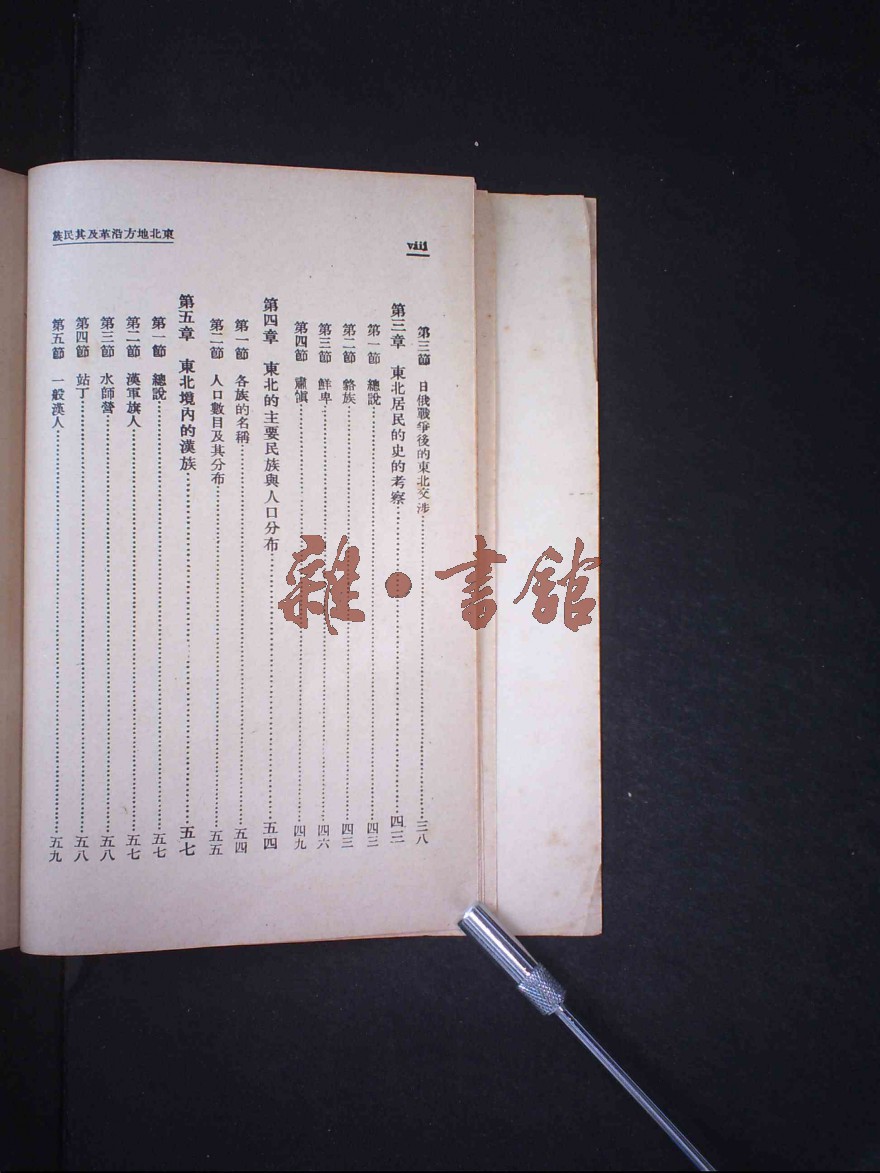 東北地方沿革及其民族
viii
第三節 日俄戰爭後的東北交涉 三八
第三章 東北居民的史的考察 四三
第一節 總說 四三
第二節 貉族 四三
第三節 鮮卑 四六
第四節 肅愼 四九
第四章 東北的主要民族與人口分布 五四
第一節 各族的名稱 五四
第二節 人口數目及其分布 五五
第五章 東北境內的漢族 五七
第一節 總說 五七
第二節 漢軍旗人 五七
第三節 水師營 五八
第四節 站丁 五八
第五節 一般漢人 五九
雜·書館